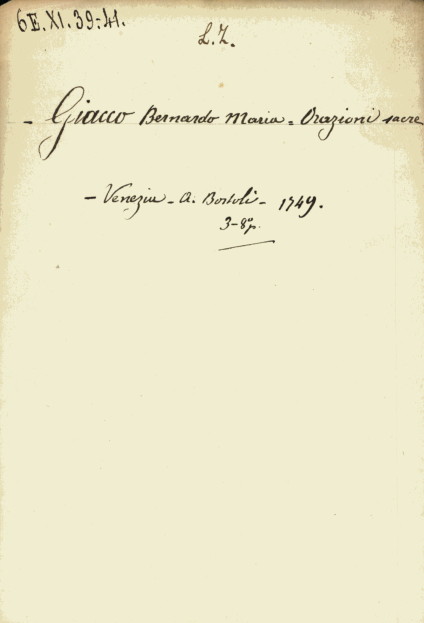 6E.XI.39-41.
L.Z.
- Giacco Bernardo Maria = Orazioni sacre
- Venezia - A. Bortoli - 1749.
3-8°p.